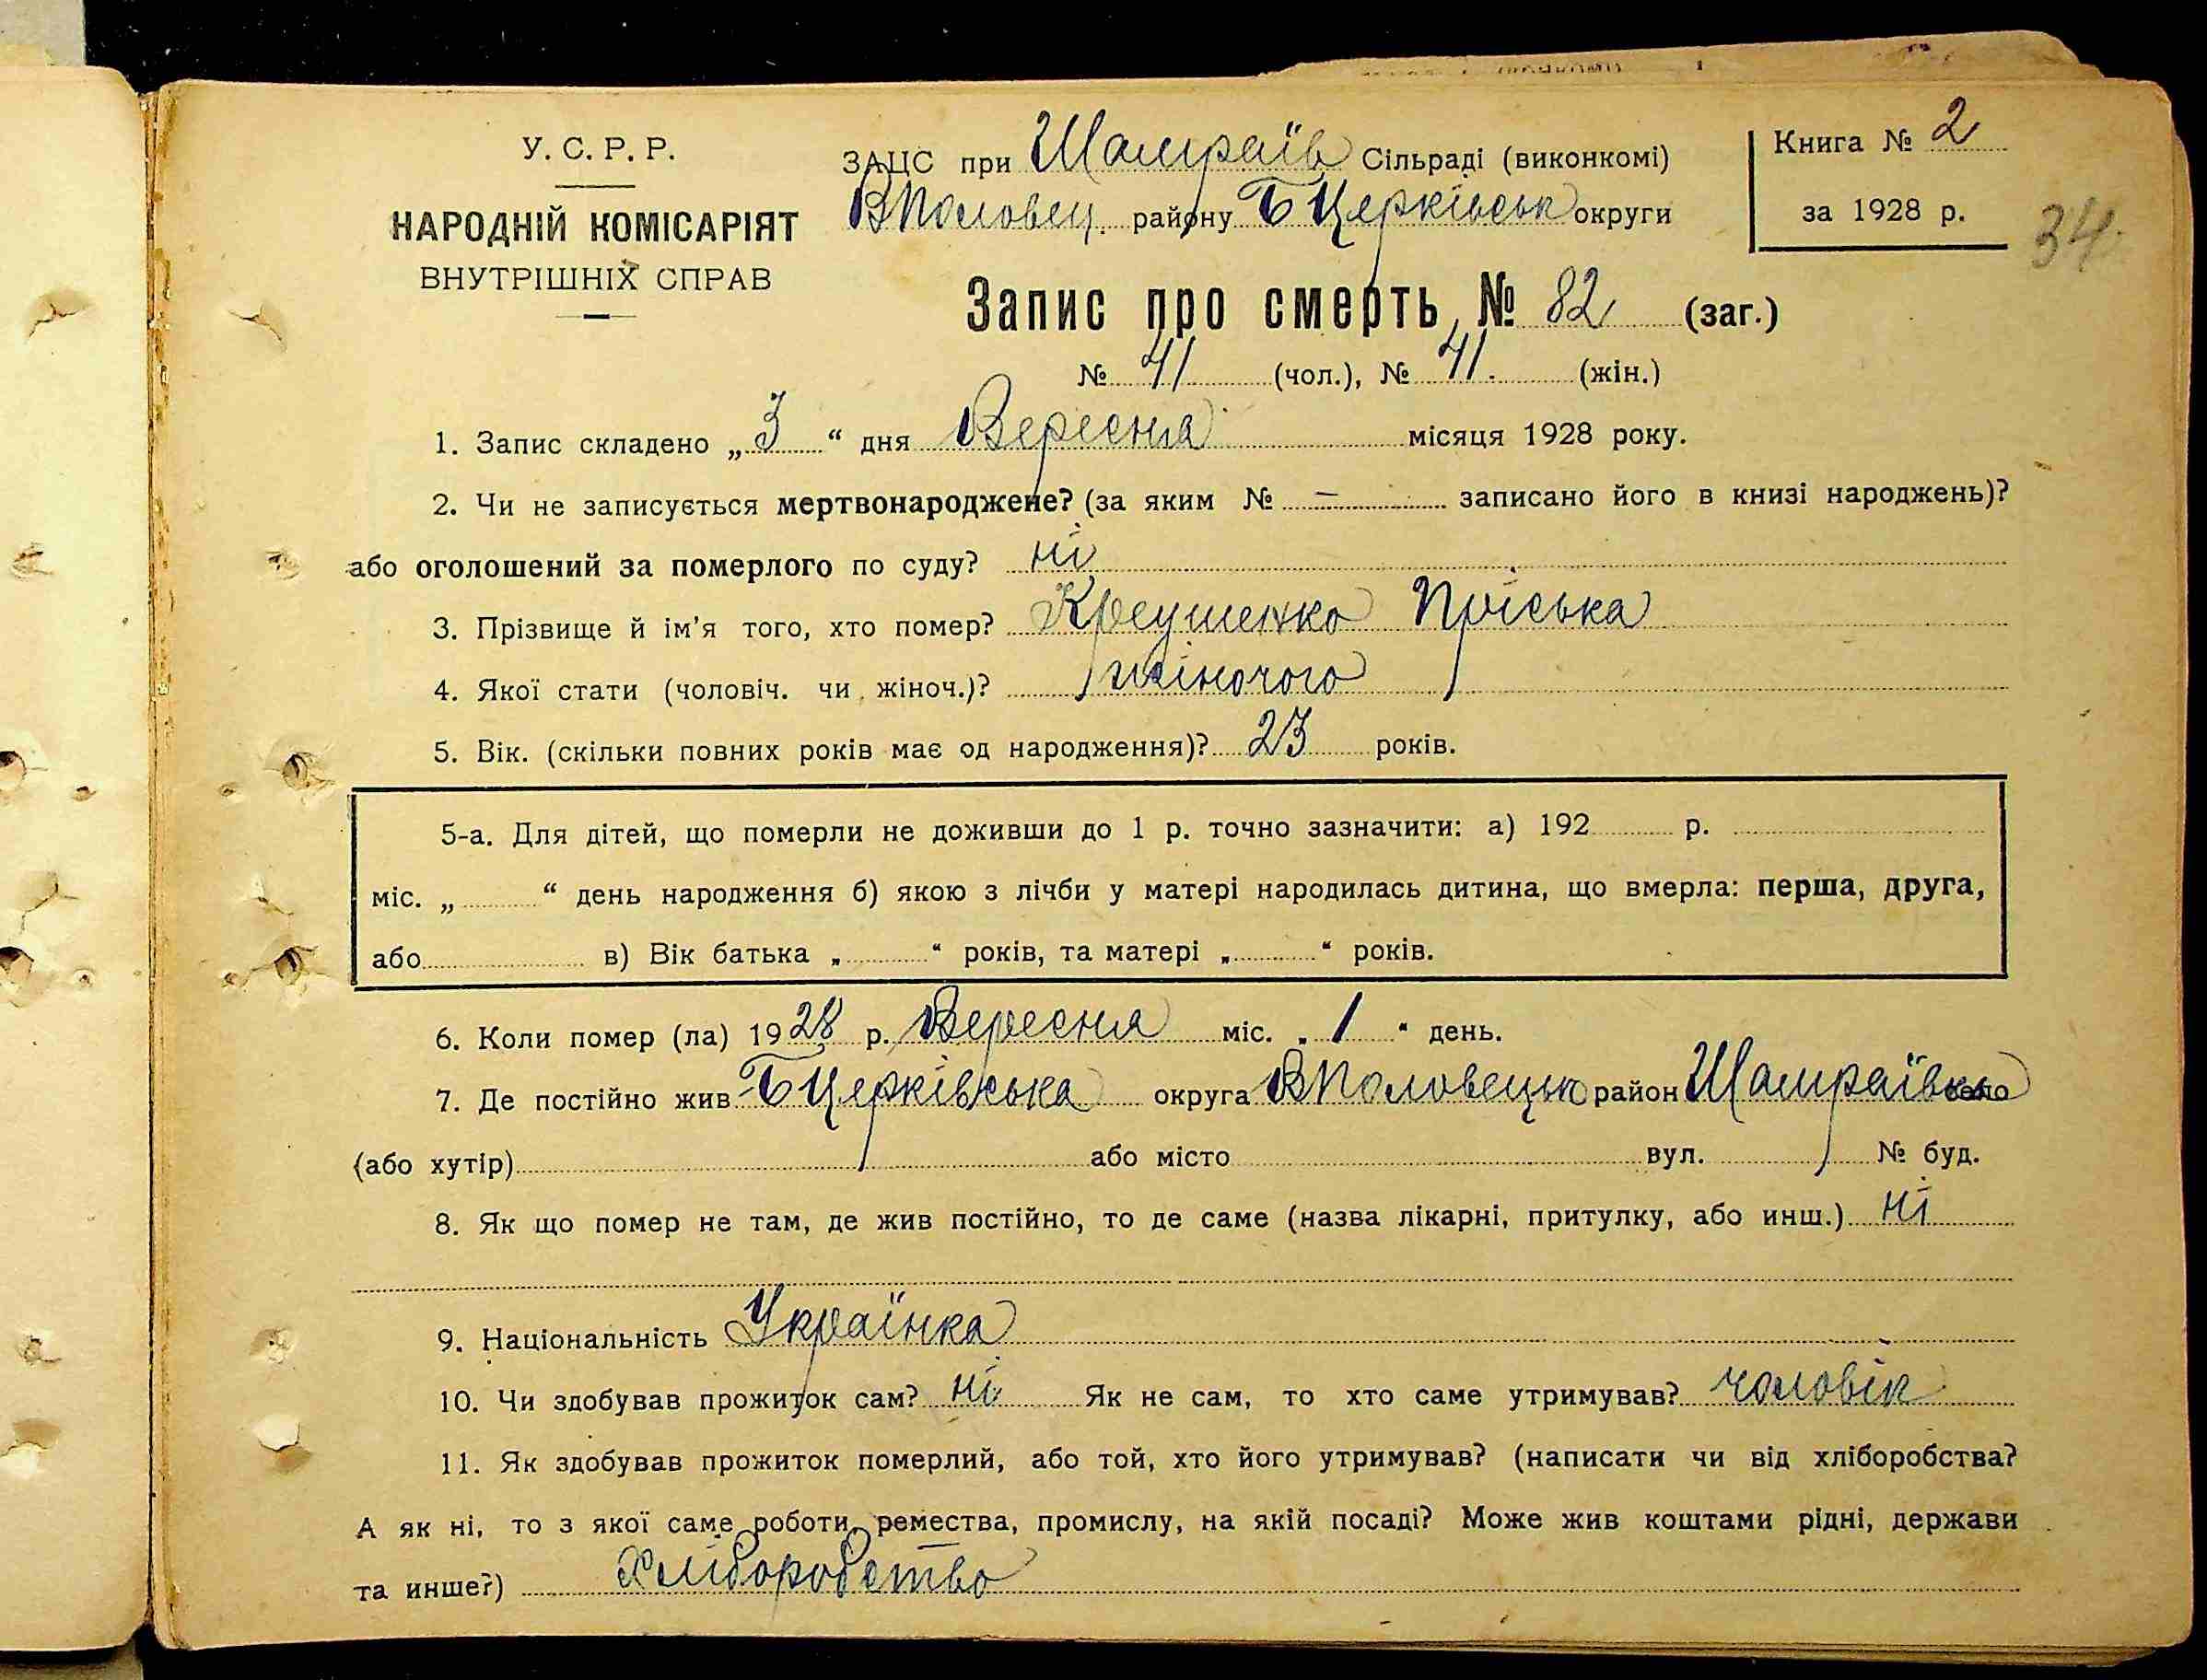 У. С. Р. Р.
НАРОДНІЙ КОМІСАРІЯТ
ВНУТРІШНІХ СПРАВ
ЗАЦС при Шамраїв Сільраді (виконкомі)
ВПоловец. району БЦерківськ округи
Книга № 2
за 1928 р.
34
Запис про смерть № 82 (заг.)
№ 41 (чол.), № 41. (жін.)
1. Запис складено „ 3 “ дня Вересня місяця 1928 року.
2. Чи не записується мертвонароджене? (за яким № — записано його в книзі народжень)?
або оголошений за померлого по суду? ні
3. Прізвище й ім'я того, хто помер? Пріська
4. Якої стати (чоловіч. чи жіноч.)? жіночого
5. Вік. (скільки повних років має од народження)? 23 років.
5-а. Для дітей, що померли не доживши до 1 р. точно зазначити: а) 192 р.
міс. „ “ день народження б) якою з лічби у матері народилась дитина, що вмерла: перша, друга,
або в) Вік батька „ “ років, та матері „ “ років.
6. Коли помер (ла) 1928 р. Вересня міс. „ 1 “ день.
7. Де постійно жив БЦерківська округа ВПоловецьк район Шамраївка село
(або хутір) або місто вул. № буд.
8. Як що помер не там, де жив постійно, то де саме (назва лікарні, притулку, або инш.) ні
9. Національність Українка
10. Чи здобував прожиток сам? ні Як не сам, то хто саме утримував? чоловік
11. Як здобував прожиток померлий, або той, хто його утримував? (написати чи від хліборобства?
А як ні, то з якої саме роботи, ремества, промислу, на якій посаді? Може жив коштами рідні, держави
та инше?) Хліборобство